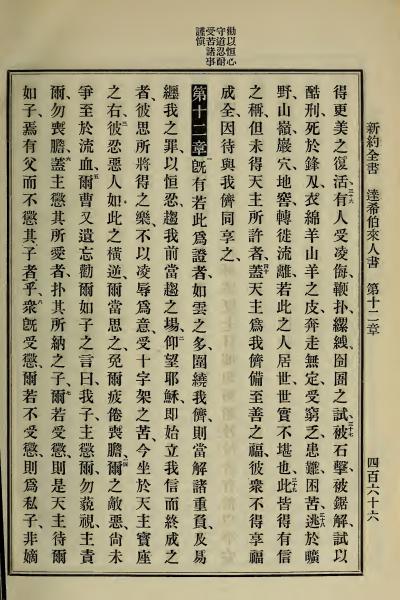 勸以恒心
守道忍耐
受苦諸事
謹慎
新約全書
達希伯來人書
第十二章
四百六十六
得更美之復活、三十六有人受凌侮、鞭扑縲絏囹圄之試、三十七被石擊、被鋸解、試以
酷刑、死於鋒刄、衣綿羊山羊之皮、奔走無定、受窮乏患難困苦、三十八逃於曠
野山嶺巖穴地窖、轉徙流離、若此之人居世、世實不堪也、三十九此皆得有信
之稱、但未得天主所許者、四十蓋天主爲我儕備至善之福、彼衆不得享福
成全、因待與我儕同享之、
第十二章 一旣有若此爲證者、如雲之多、圍繞我儕、則當解諸重負、及易
纏我之罪、以恒忍趨我前當趨之塲、二仰望耶穌、卽始立我信而終成之
者、彼思所將得之樂、不以凌辱爲意、受十字架之苦、今坐於天主寶座
之右、三彼忍惡人如此之橫逆、爾當思之、免爾疲倦喪膽、四爾之敵惡、尚未
爭至於流血、五爾曹又遺忘勸爾如子之言、曰、我子、主懲爾、勿藐視、主責
爾、勿喪膽、六蓋主懲其所愛者、扑其所納之子、七爾若受懲、則是天主待爾
如子、焉有父而不懲其子者乎、八衆旣受懲、爾若不受懲、則爲私子、非嫡